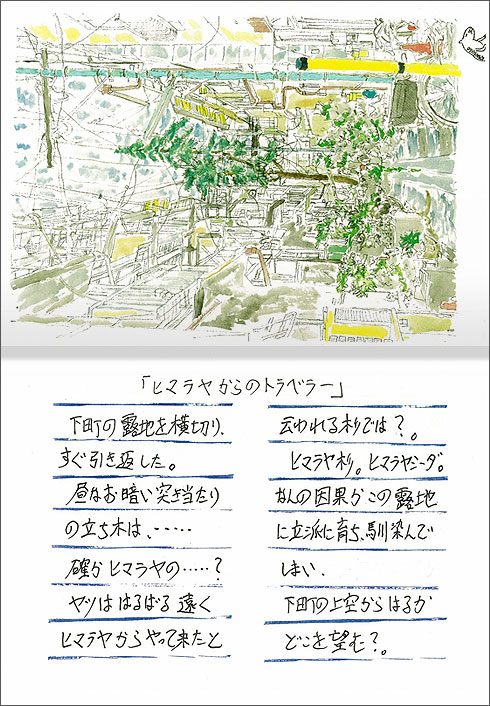 「ヒマラヤからのトラベラー」
下町の露地を横切り、
すぐ引き返した。
昼なお暗い突き当たり
の立ち木は、……
確かヒマラヤの……?
ヤツははるばる遠く
ヒマラヤからやって来たと
云われる杉では?。
ヒマラヤ杉。ヒマラヤシーダ。
なんの因果かこの露地
に立派に育ち、馴染んで
しまい、
下町の上空からはるか
どこを望む?。